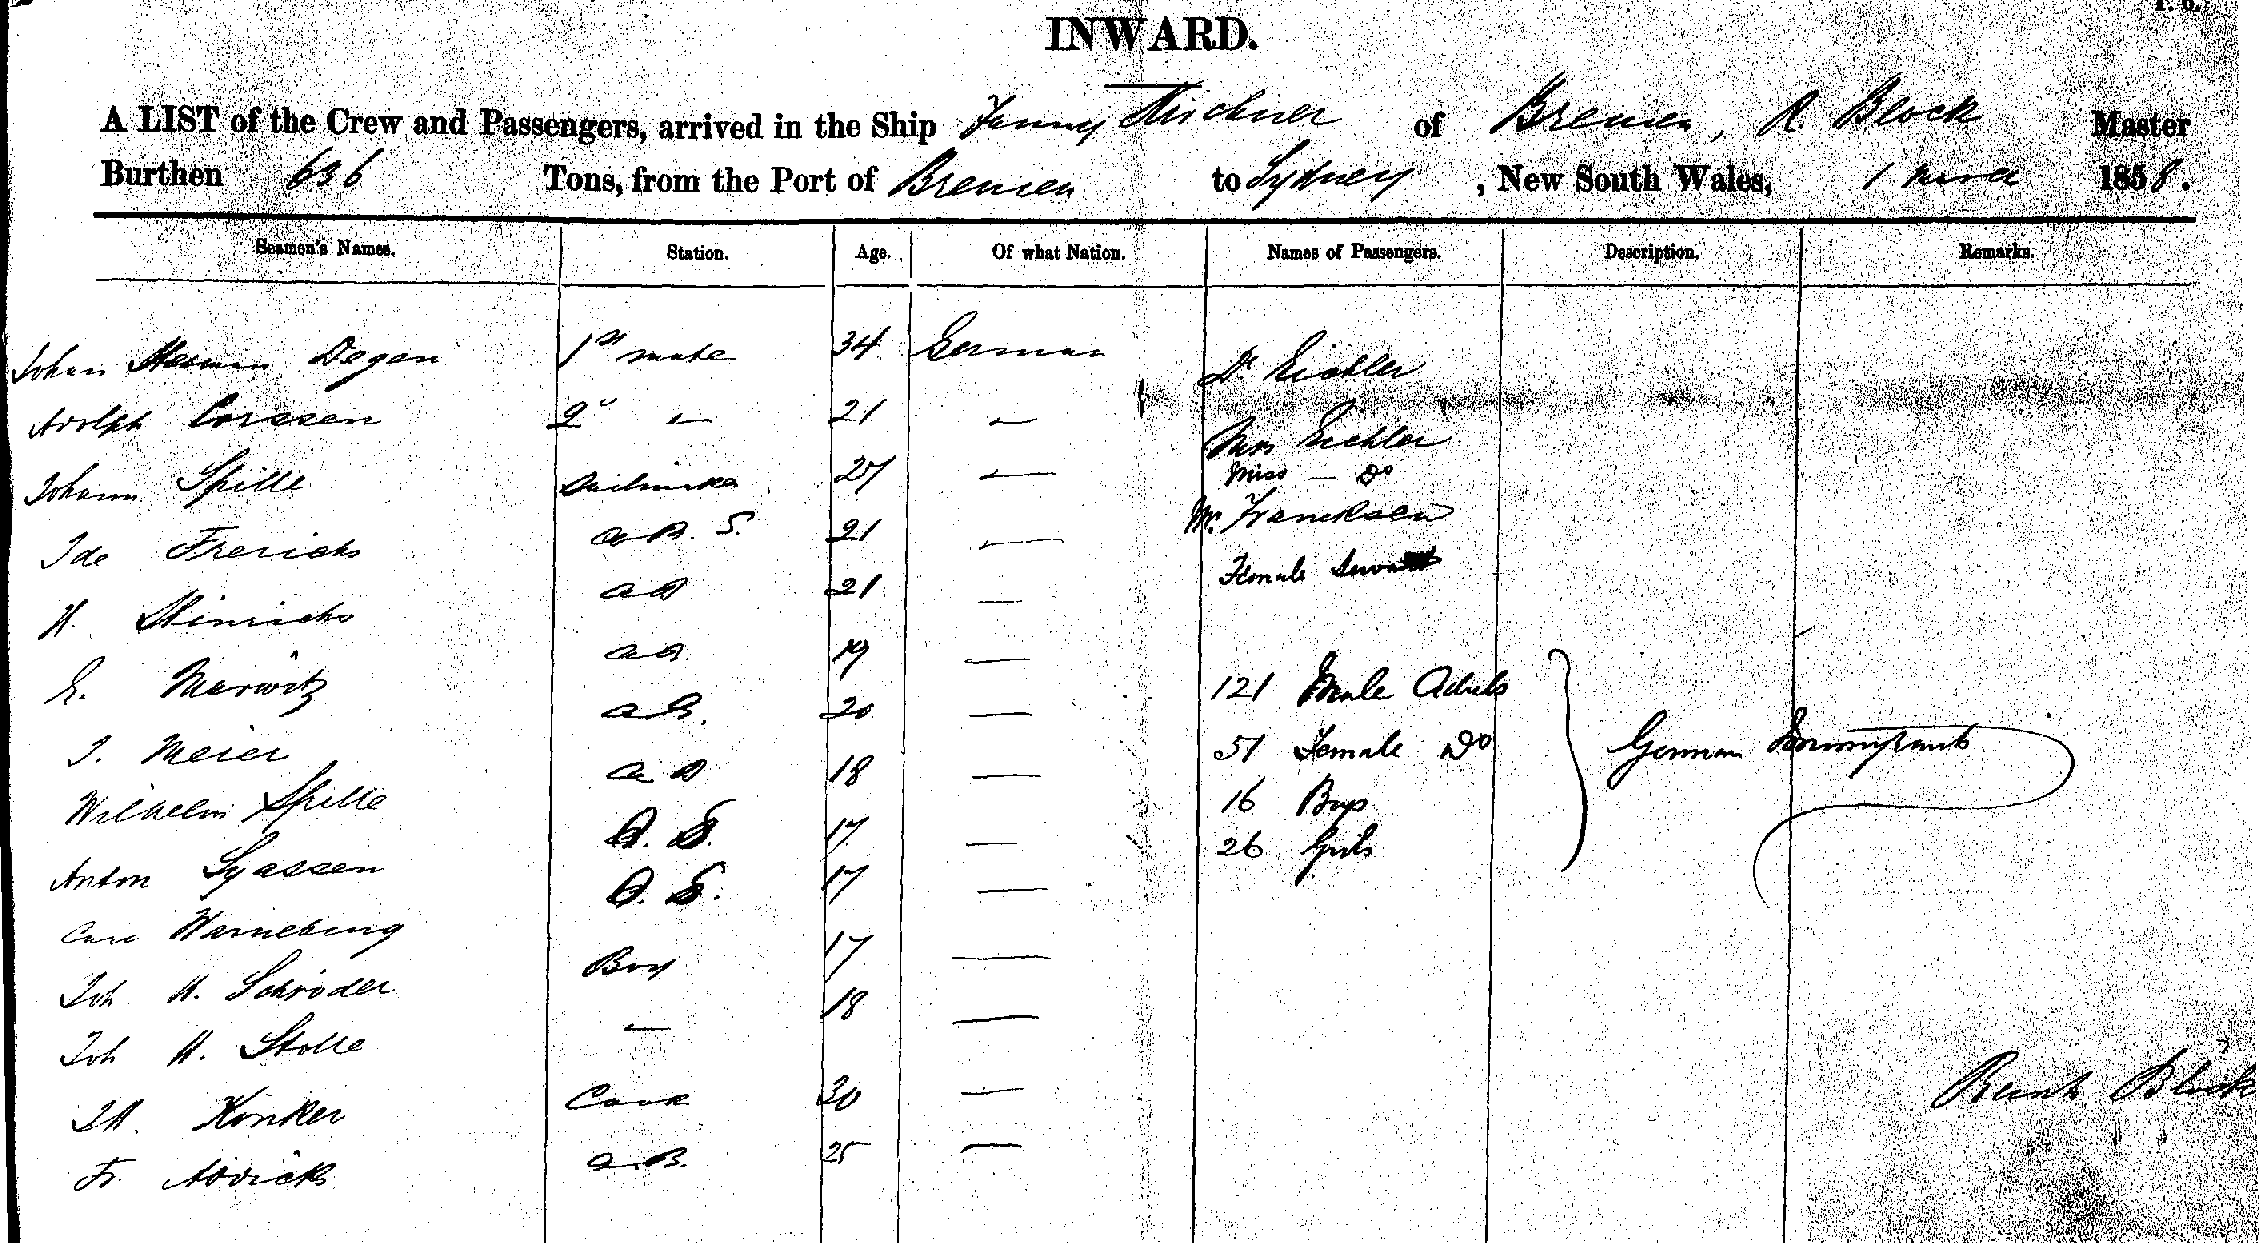 INWARD.
A LIST of the Crew and Passengers, arrived in the Ship Fanny Kirchner of Bremen, R. Block Master
Burthen 636 Tons, from the Port of Bremen to Sydney, New South Wales, 1 1858.
Seamen's Names. Station. Age. Of what Nation. Names of Passengers. Description. Remarks.
Johan Herman Degen 1st mate 34 German Dr Eichler
Adolph Corssen 2d — 21 — Mrs Eichler
Miss — Do
Johann Spille 27 —
Mr. Francksen
Ide Frerichs a B. S. 21 —
Female
H. Hinrichs a B 21 —
E. Marwitz a B 19 — 121 Male Adults
J. Meier a B. 20 — 51 Female Do German Immigrants
Wilhelm Spille a B 18 — 16 Boys
Anton Syassen O. S. 17 — 26 Girls
Carl Warneking O. S. 17 —
Joh H. Schröder Boy 17 —
Joh H. Stolle — 18 —
J H. Konker Cook 30 — Block
Fr. Addicks a. B. 25 —